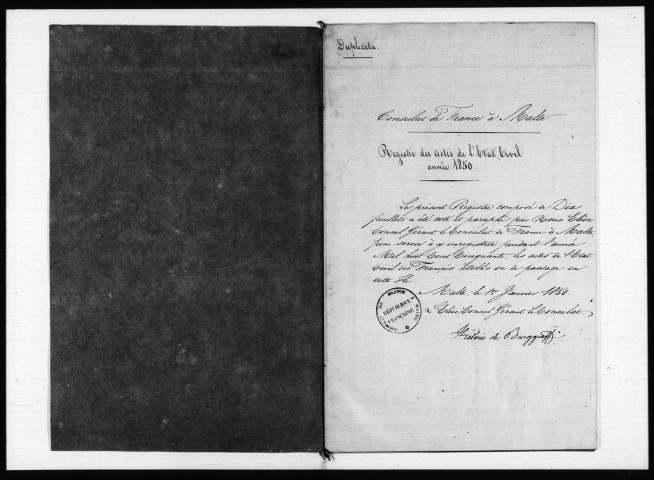 Duplicata.
Consulat de France à Malte.
Registre des actes de l'Etat Civil
année 1850.
Le présent Registre composé de Dix
feuillets a été coté et paraphé par Nous Elève
Consul Gérant le Consulat de France à Malte,
pour servir à y enregistrer pendant l'année
Mil huit Cent Cinquante, les actes de l'Etat
Civil des Français établis ou de passage en
cette Ile.
Malte, le 1er Janvier 1850.
L'Elève Consul Gérant le Consulat,
Frédéric de Burggraff
CONSULAT DE FRANCE
RÉPUBLIQUE
FRANÇAISE